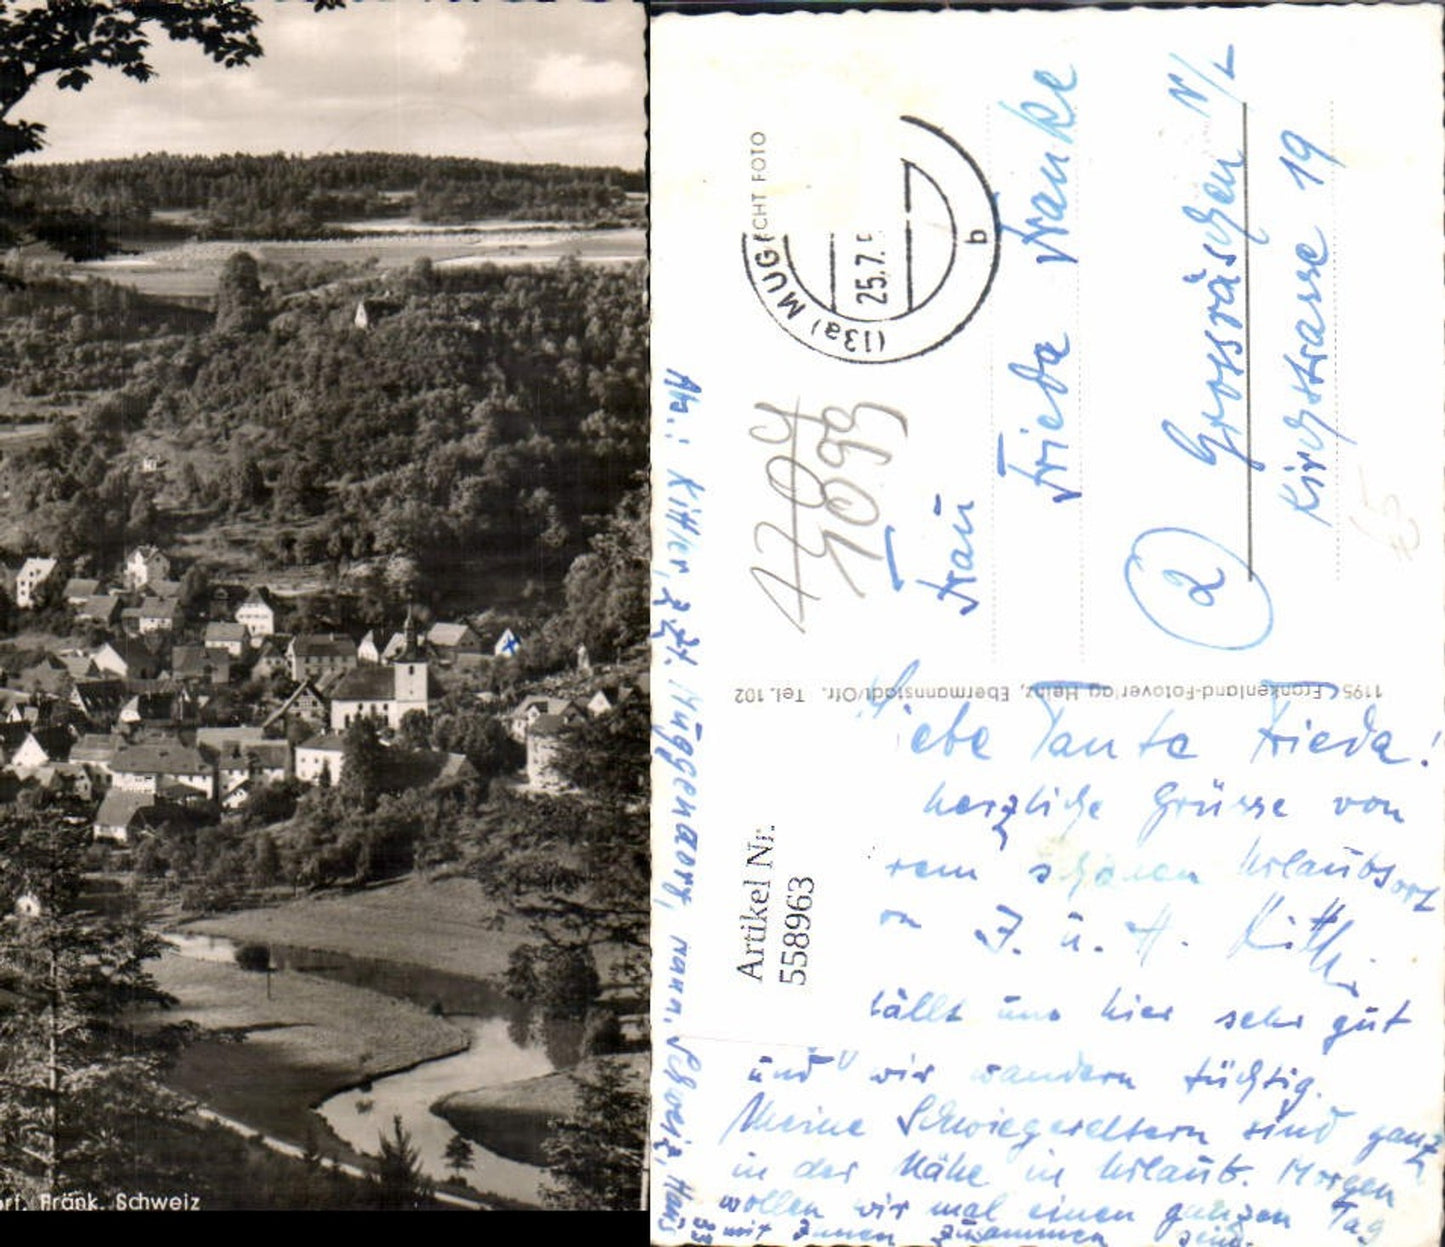 orf. Fränk. Schweiz
ECHT FOTO
(13a) MÜGG
25.7.
b
1704
1093
Frau
Frieda Franke
(2) Grossräschen N/L
Kirchstrasse 19
1195 Frankenland-Fotoverlag Heinz, Ebermannstadt/Ofr. Tel. 102
Artikel Nr.
558963
Liebe Tante Frieda!
herzliche Grüsse von
rem schönen Urlaubsort
J. u. H. Kittler
fällt uns hier sehr gut
und wir wandern tüchtig.
Meine Schwiegereltern sind ganz
in der Nähe in Urlaub. Morgen
wollen wir mal einen ganzen Tag
mit Ihnen zusammen sein.
Abs.: Kittler, z. Zt. Müggendorf, Schweiz, Haus